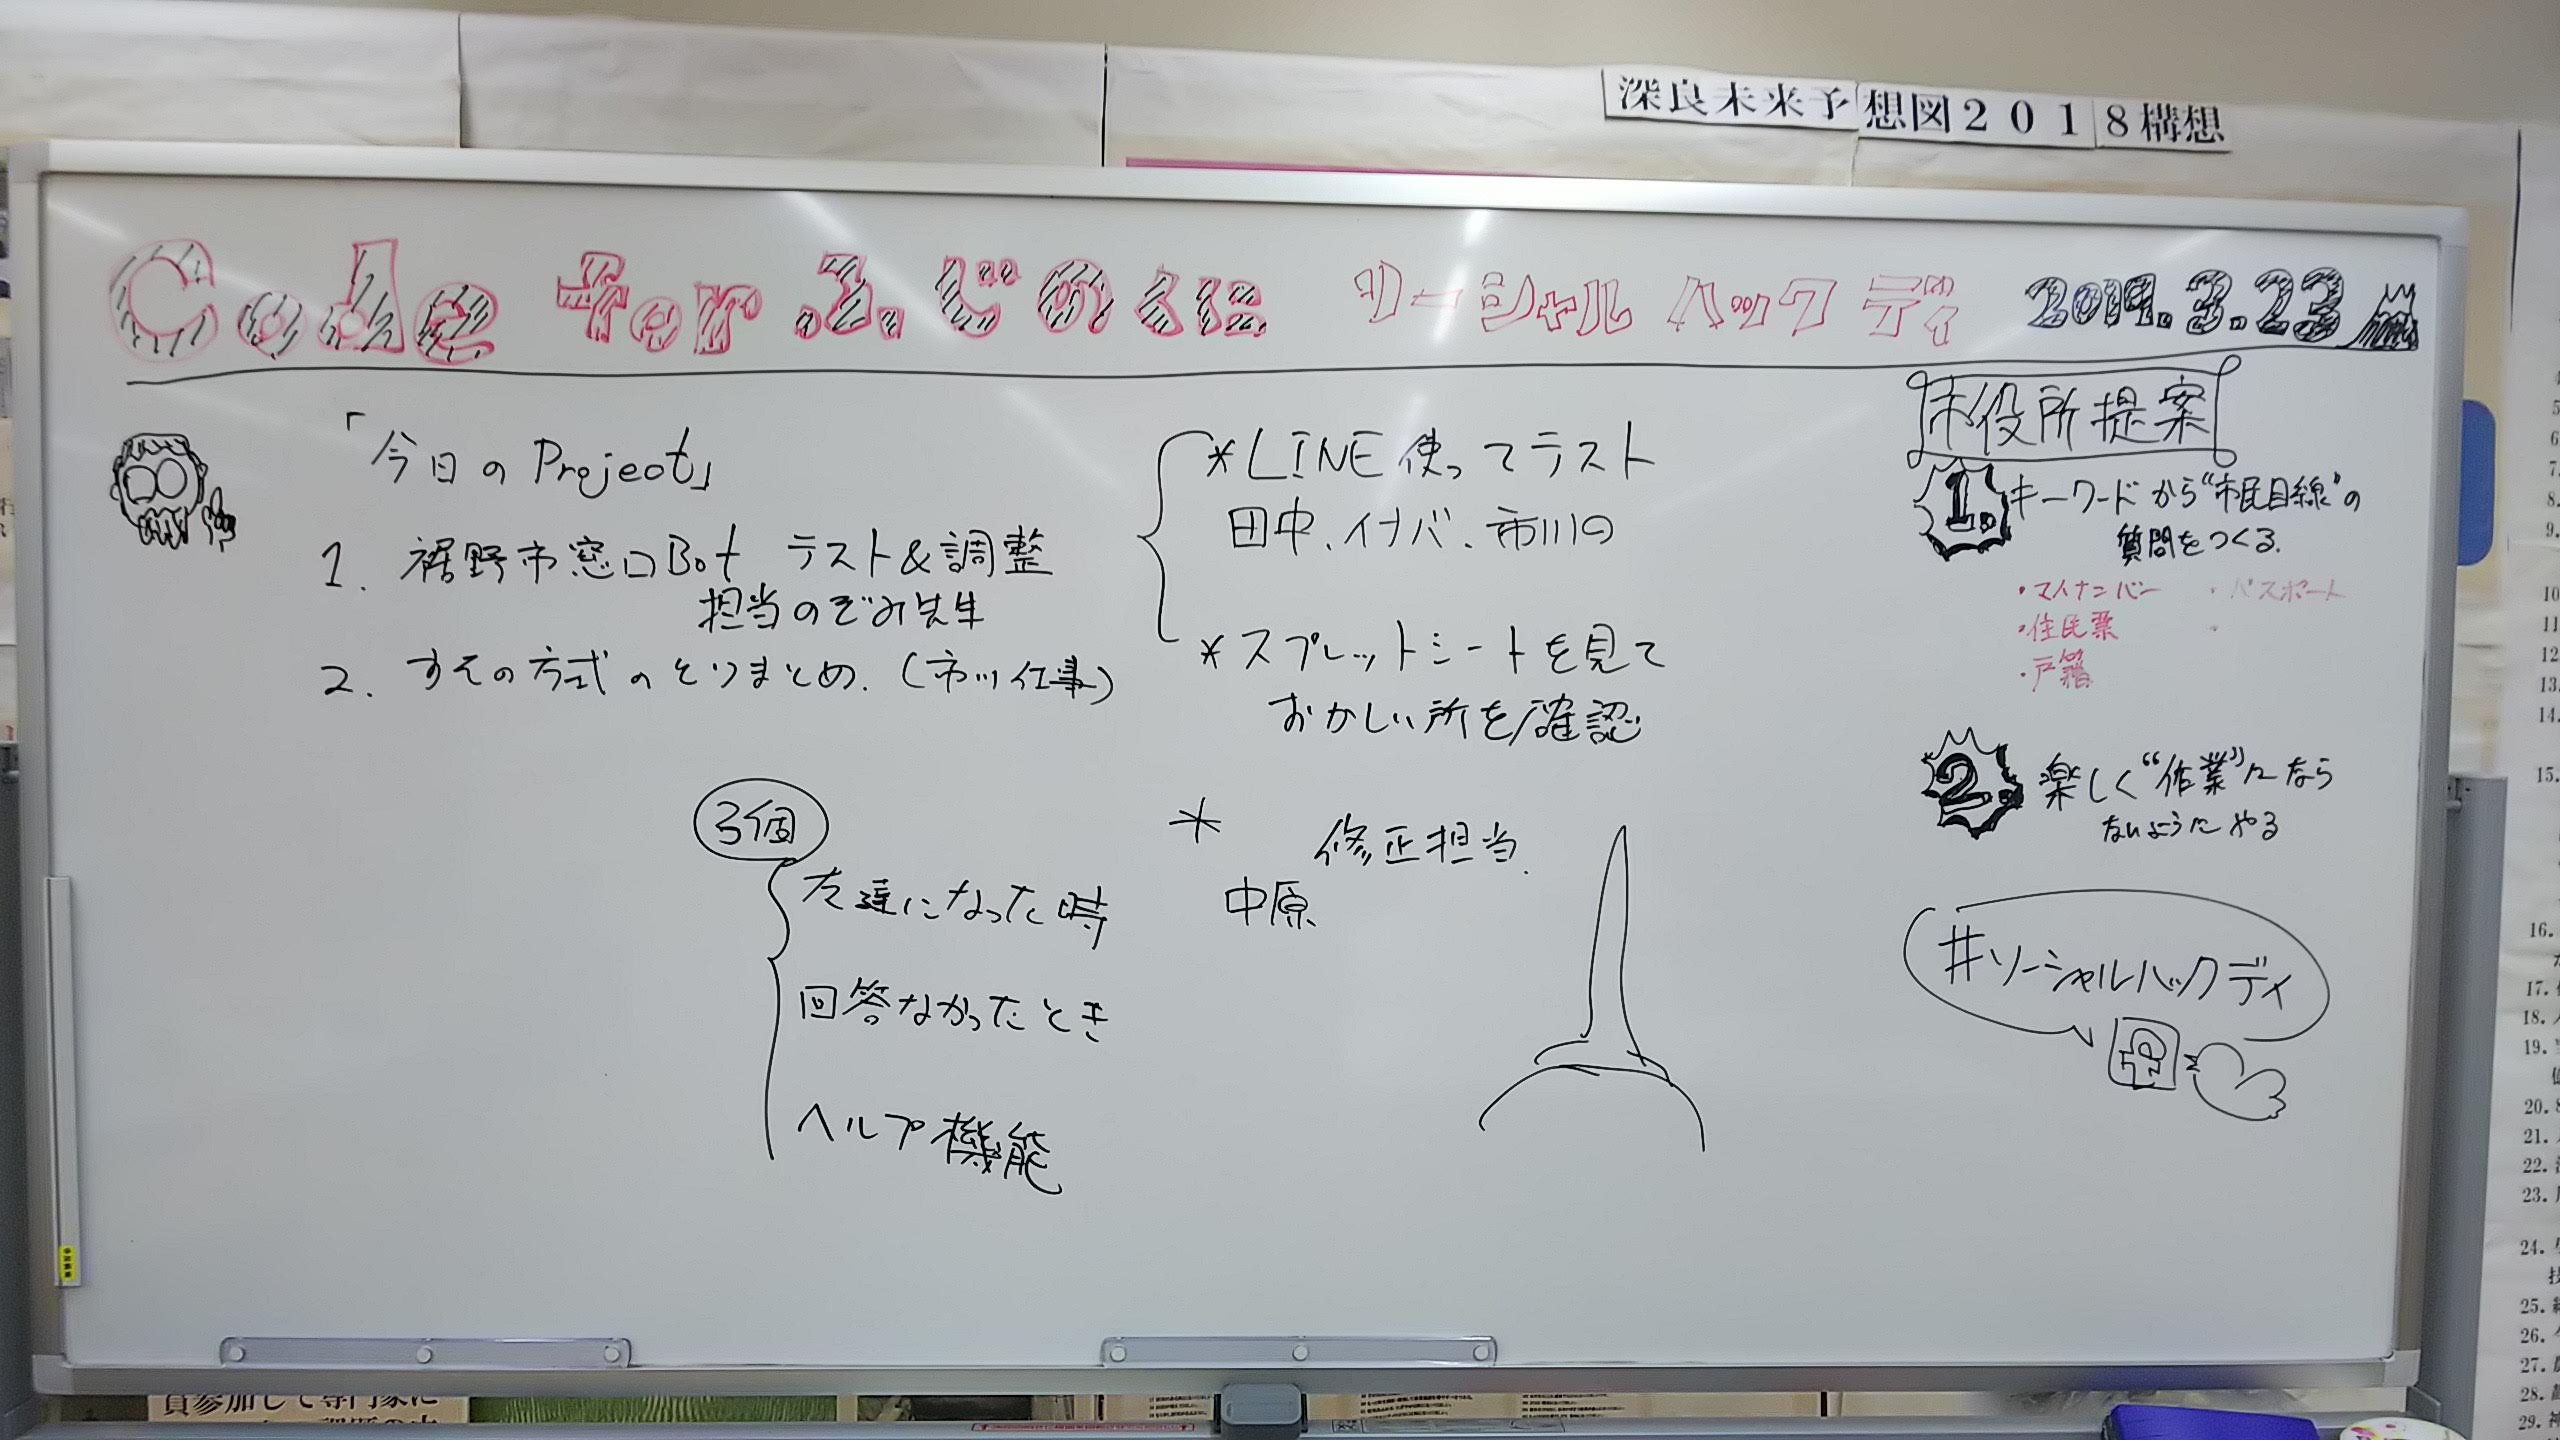 深良未来予想図2018構想
Code for ふじのくに ソーシャル ハック ディ 2019.3.23
「今日の Project」
1. 裾野市窓口Bot テスト&調整
担当のぞみ先生
2. すその方式のとりまとめ.(市川仕事)
*LINE使ってテスト
田中、イナバ、市川の
*スプレットシートを見て
おかしい所を確認
3個
友達になった時
回答なかったとき
ヘルプ機能
*
修正担当.
中原
市役所提案
1. キーワードから“市民目線”の
質問をつくる.
・マイナンバー ・パスポート
・住民票 ・
・戸籍
2. 楽しく“作業”になら
ないようにやる
#ソーシャルハックディ
員参加して専門家に